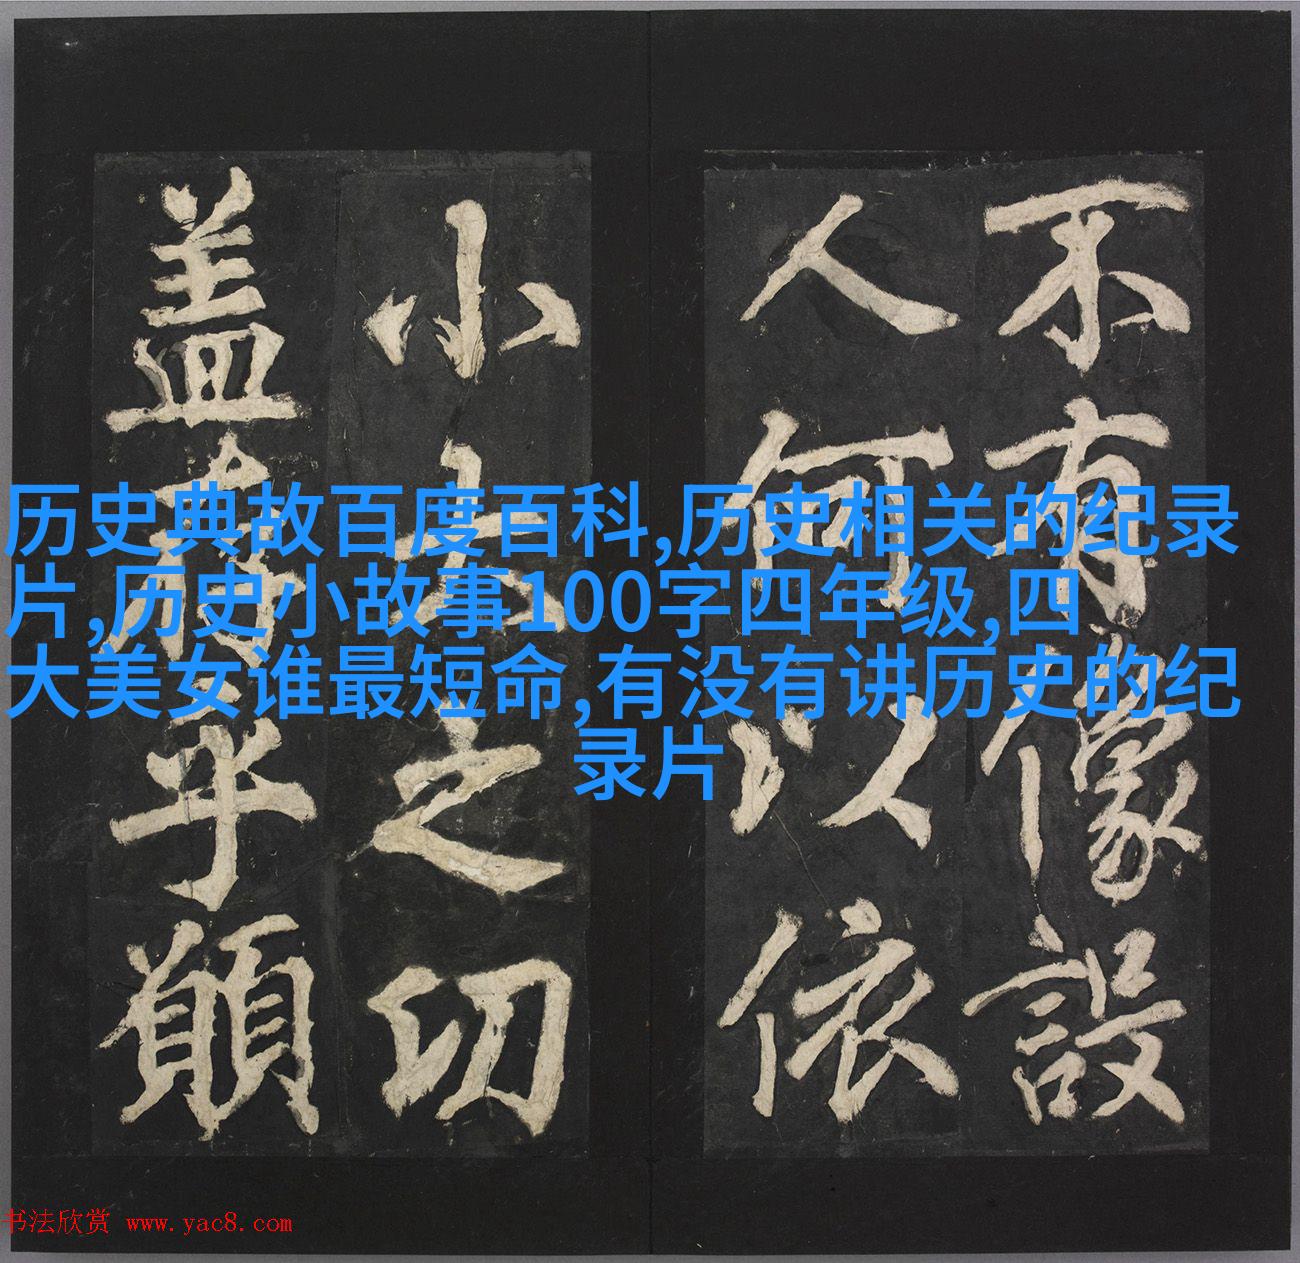 不有像設
人何以依
小大之切
盖乎
历史典故百度百科,历史相关的纪录
片,历史小故事100字四年级,四
大美女谁最短命,有没有讲历史的纪
录片
书法欣赏 www.yac8.com